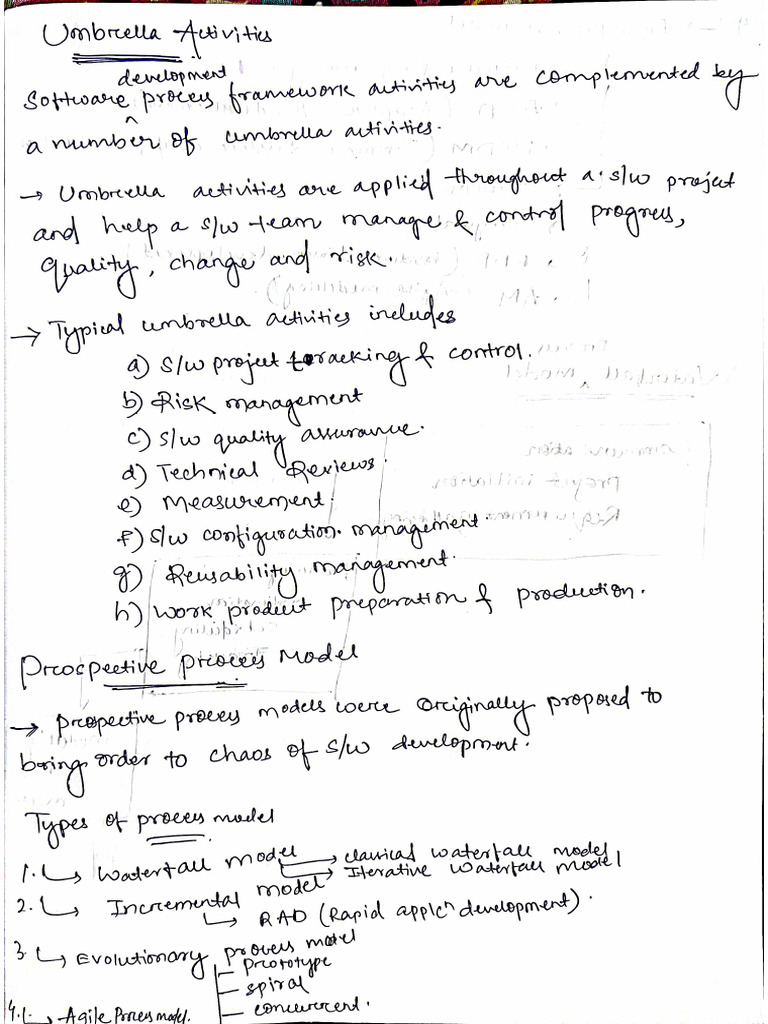 Umbrella Activities
development
Software process framework activities are complemented by
a number of umbrella activities.
→ Umbrella activities are applied throughout a s/w project
and help a s/w team manage & control progress,
quality, change and risk.
→ Typical umbrella activities includes
a) S/w project tracking & control.
b) Risk management
c) S/w quality assurance.
d) Technical Reviews.
e) Measurement.
f) S/w configuration management.
g) Reusability management.
h) Work product preparation & production.
Prospective process Model
→ Prospective process models were originally proposed to
bring order to chaos of S/W development.
Types of process model
1. ↳ Waterfall model → classical waterfall model
→ Iterative waterfall model
2. ↳ Incremental model
↳ RAD (Rapid applcn development).
3. ↳ Evolutionary process model
– prototype
– spiral
– concurrent.
4. ↳ Agile Process model.